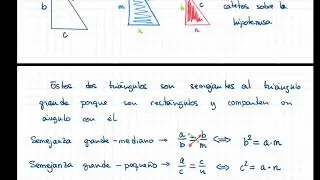 b c
m h n
h c n
catetos sobre la
hipotenusa
Estos dos triángulos son semejantes al triángulo
grande porque son rectángulos y comparten un
ángulo con él
Semejanza grande-mediano → a/b = b/m ⇔ b² = a·m
Semejanza grande-pequeño → a/c = c/n ⇔ c² = a·n